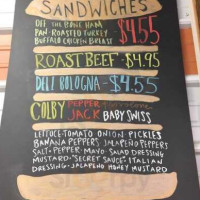 SANDWICHES
OFF THE BONE HAM
PAN-ROASTED TURKEY
BUFFALO CHICKEN BREAST
$4.55
ROAST BEEF-$4.95
DELI BOLOGNA-$4.55
COLBY PEPPER JACK
BABY SWISS
LETTUCE-TOMATO ONION PICKLES
BANANA PEPPERS JALAPEÑO PEPPERS
SALT-PEPPER-MAYO-SALAD DRESSING
MUSTARD-"SECRET SAUCE"-ITALIAN
DRESSING-JALAPENO HONEY MUSTARD